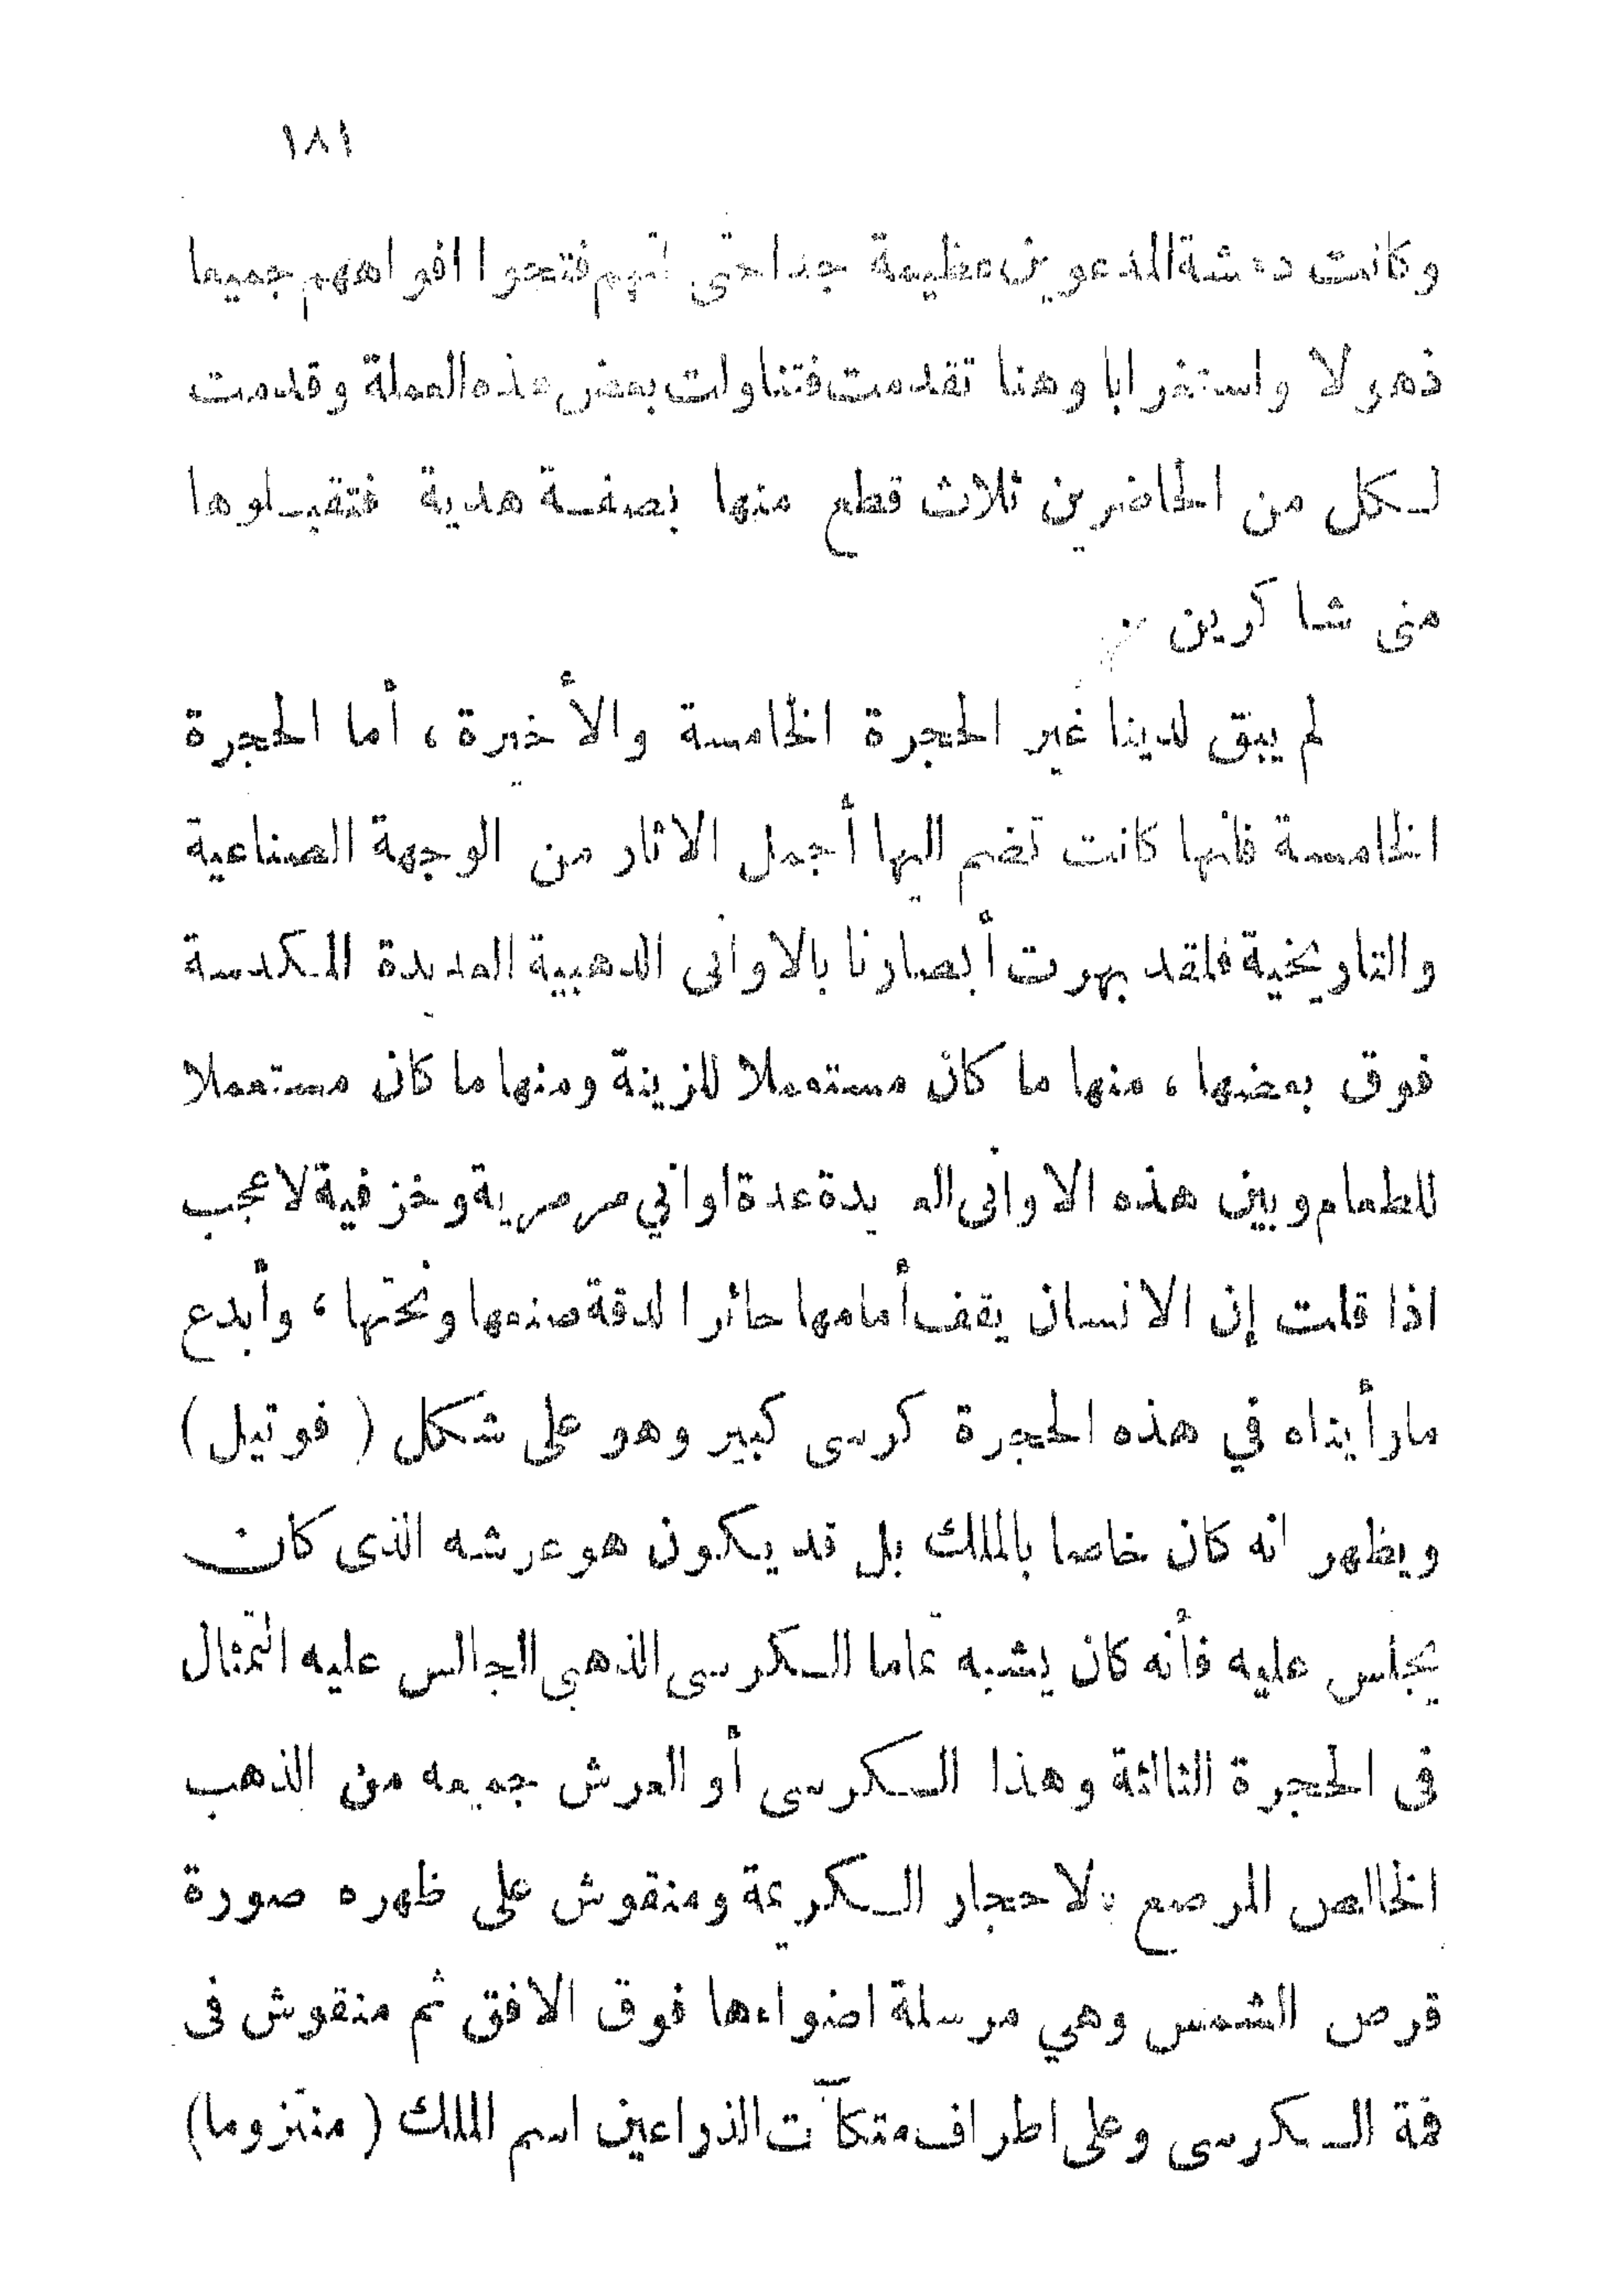 ١٨١
وكانت دهشة المدعوين عظيمة جدا حتى انهم فتحوا افواههم جميعا
ذهولا واستغرابا وهنا تقدمت فتناولت بعض هذه العملة وقدمت
لكل من الحاضرين ثلاث قطع منها بصفة هدية فتقبلوها
منى شاكرين
لم يبق لدينا غير الحجرة الخامسة والأخيرة ، أما الحجرة
الخامسة فانها كانت تضم اليها أجمل الاثار من الوجهة الصناعية
والتاريخية فلقد بهرت أبصارنا بالاوانى الذهبية العديدة المكدسة
فوق بعضها ، منها ما كان مستعملا للزينة ومنها ما كان مستعملا
للطعام وبين هذه الاوانى العديدة عدة اواني مرمرية وخزفية لا عجب
اذا قلت إن الانسان يقف أمامها حائرا لدقة صنعها ونحتها ، وأبدع
مارأيناه في هذه الحجرة كرسى كبير وهو على شكل ( فوتيل )
ويظهر انه كان خاصا بالملك بل قد يكون هو عرشه الذى كان
يجلس عليه فأنه كان يشبه تماما الكرسى الذهبي الجالس عليه التمثال
فى الحجرة الثالثة وهذا الكرسى أو العرش جميعه من الذهب
الخالص المرصع بالاحجار الكريمة ومنقوش على ظهره صورة
قرص الشمس وهي مرسلة اضواءها فوق الافق ثم منقوش فى
قمة الكرسى وعلى اطراف متكآت الذراعين اسم الملك ( منتزوما )